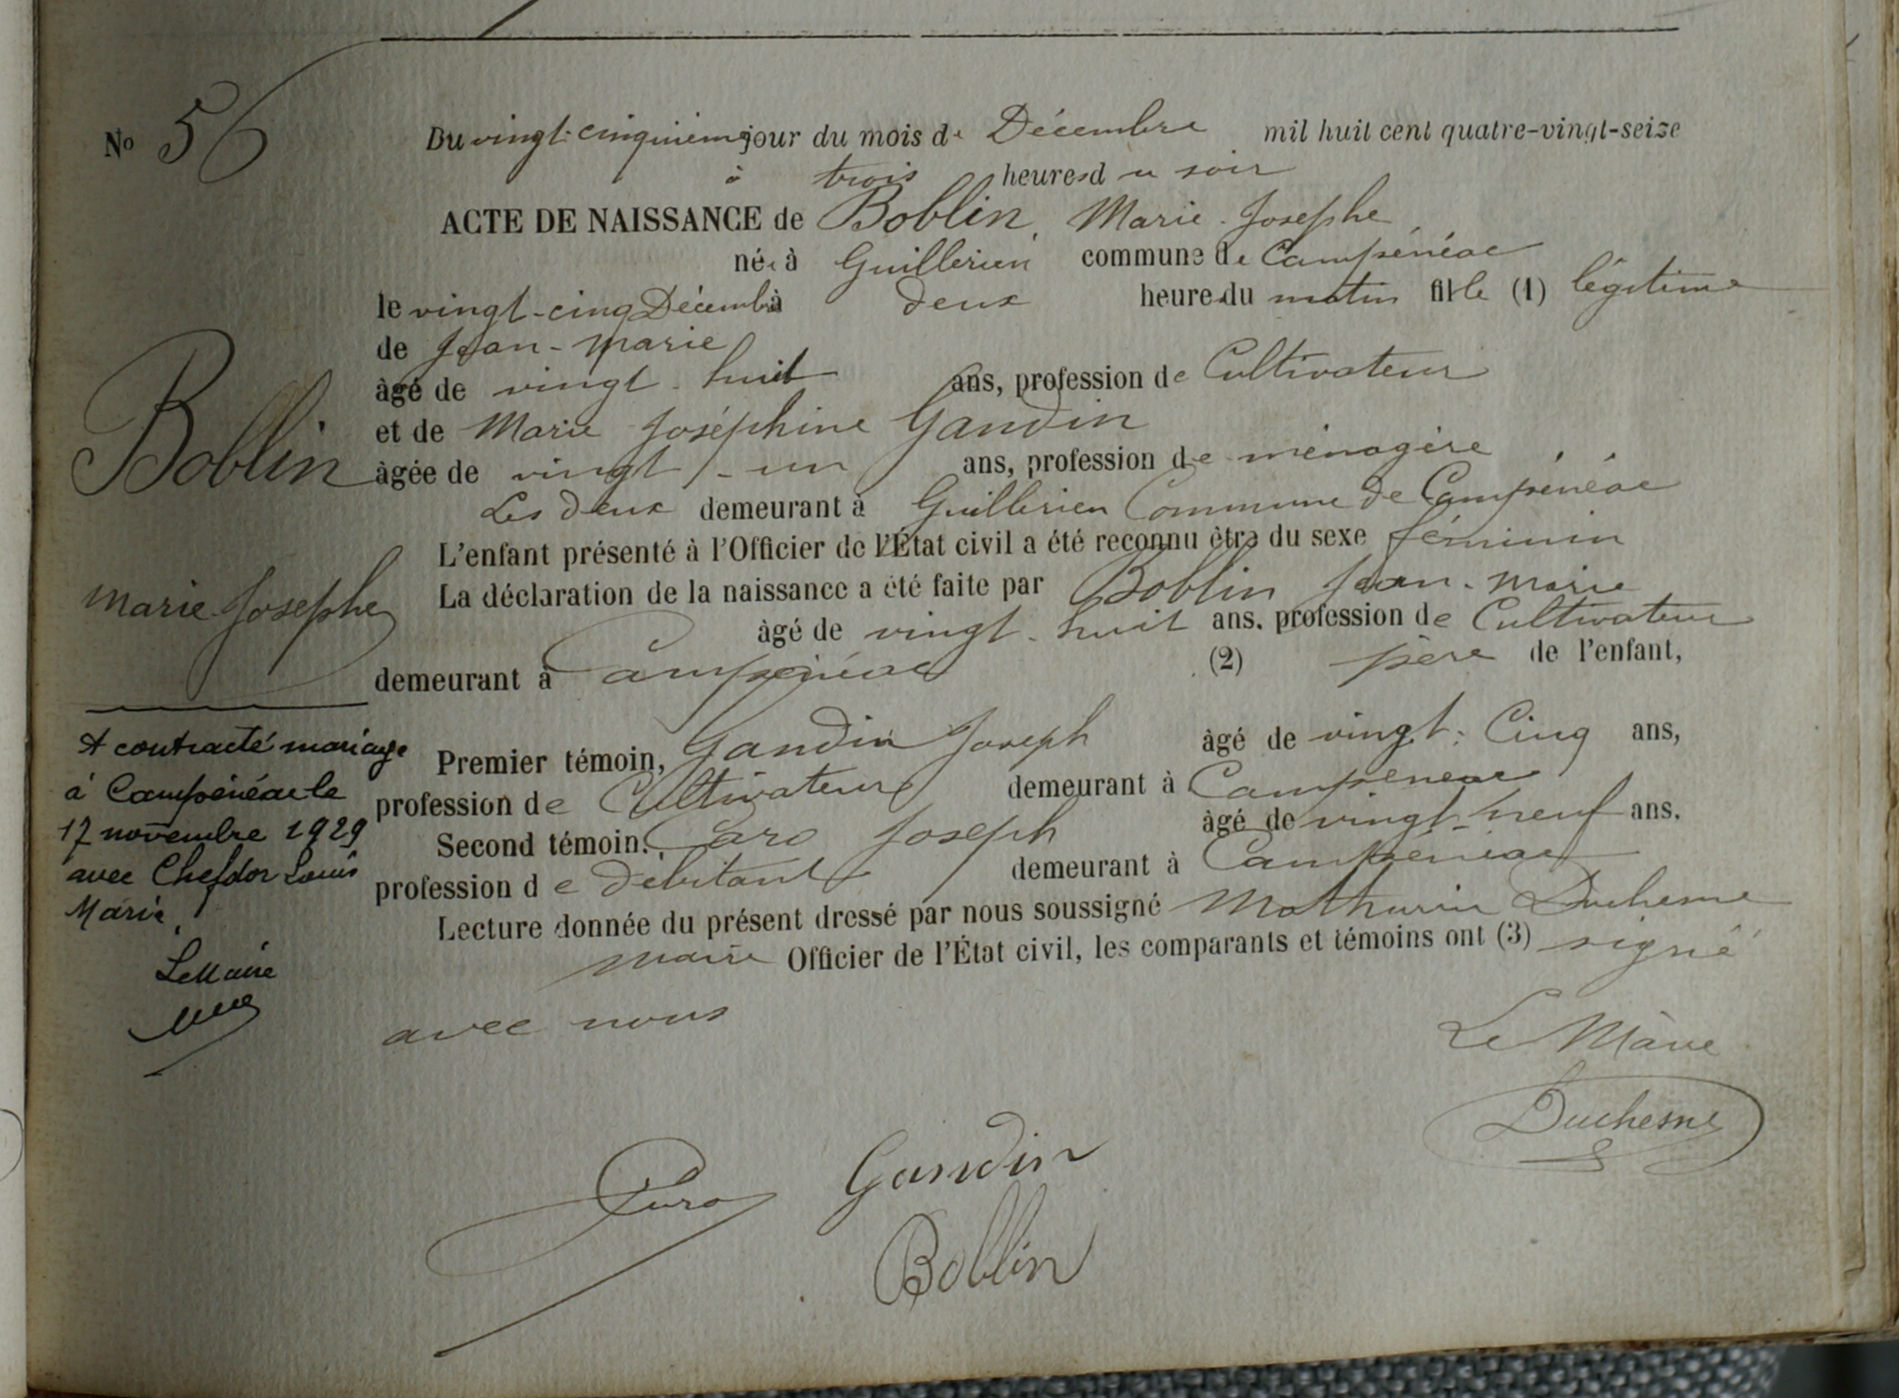 No 56
Du vingt-cinquième jour du mois de Décembre mil huit cent quatre-vingt-seize
à trois heures du soir
ACTE DE NAISSANCE de Boblin, Marie-Josephe
née à Guillerien commune de Campénéac
le vingt-cinq Décembre à deux heures du matin fille (1) légitime
de Jean-Marie
âgé de vingt-huit ans, profession de Cultivateur
et de Marie Joséphine Gandin
âgée de vingt-un ans, profession de ménagère
Les deux demeurant à Guillerien Commune de Campénéac
L'enfant présenté à l'Officier de l'État civil a été reconnu être du sexe féminin
La déclaration de la naissance a été faite par Boblin Jean-Marie
âgé de vingt-huit ans, profession de Cultivateur
demeurant à Campénéac (2) père de l'enfant,
Premier témoin, Gandin Joseph âgé de vingt-Cinq ans,
profession de Cultivateur demeurant à Campénéac
Second témoin, Caro Joseph âgé de vingt-neuf ans.
profession de Débitant demeurant à Campénéac
Lecture donnée du présent dressé par nous soussigné Mathurin Duchesne
maire Officier de l'État civil, les comparants et témoins ont (3) signé
avec nous
Le Maire
Duchesne
Caro
Gandin
Boblin
Boblin
Marie-Josephe
A contracté mariage
à Campénéac le
17 novembre 1929
avec Chefdor Louis
Marie,
Le Maire